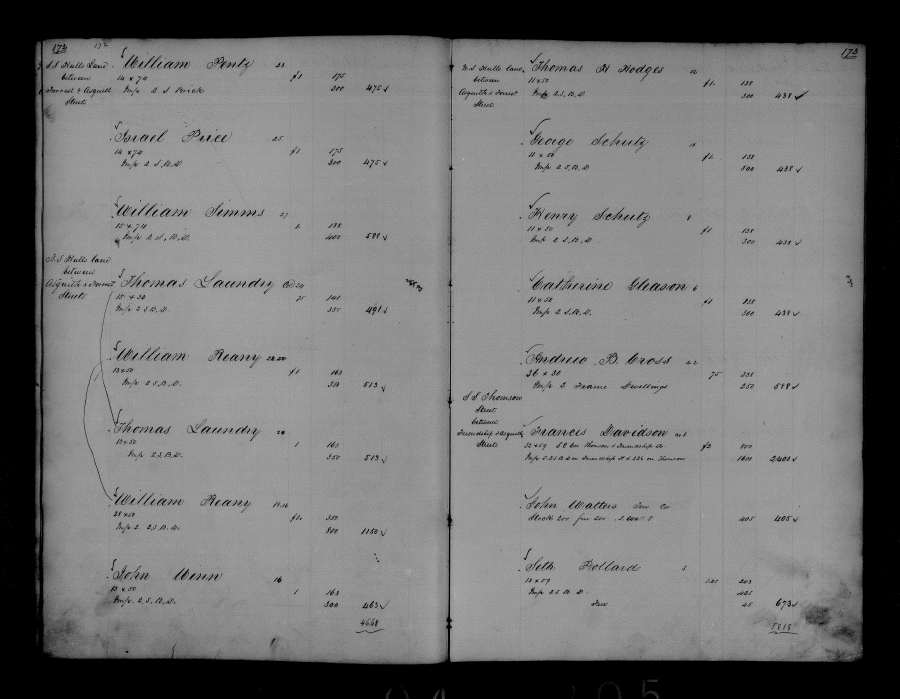 172
S.S. Hulls Land
between
Forrest & Asquith
Street
William Pentz 23
14 x 74 f1 175
Imp 2 S Brick 300 475
Israel Price 25
14 x 74 f1 175
Imp 2 S.B.D. 300 475
William Simms 27
15 x 74 1. 188
Imp 2 S.B.D. 400 588
N.S. Hulls land
between
Asquith & Forrest
Streets
Thomas Laundry 24
15 x 30 75 141
Imp 2 S B.D. 350 491
William Reany 22.20
13 x 50 f1 163
Imp 2 S.B.D. 350 513
Thomas Laundry 20
13 x 50 1 163
Imp 2 S.B.D. 350 513
William Reany 18.16
28 x 50 f1. 350
Imp 2. 2 S.B.D. 800 1150
John Wenn 14
13 x 50 1 163
Imp. 2. S. B.D. 300 463
4668
173
N.S. Hulls land,
between
Asquith & Forrest
Street
Thomas H Hodges 12
11 x 50 f1. 138
Imp 2 S. B.D 300 438
George Schutz 10
11 x 50 f1. 138
Imp 2 S.B.D 300 438
Henry Schutz 8
11 x 50 f1 138
Imp 2 S.B.D. 300 438
Catherine Gleason 6
11 x 50 f1 138
Imp 2 S.B.D. 300 438
Andrew B. Cross 2.2
36 x 30 75 338
Imp 3 Frame Dwellings 250 588
S S Thomson
Street
between
Friendship & Asquith
Streets
Francis Davidson
32 x 69 S E Cor Thomson & Friendship Sts f2 800
Imp 2 S B D on Friendship St & on Thomson 1600 2,400
John Watters
Stock 200 fur 200 405 405
Seth Pollard 5
1.50 203
Imp 2 S B D. 425
Fur 45 673
5818